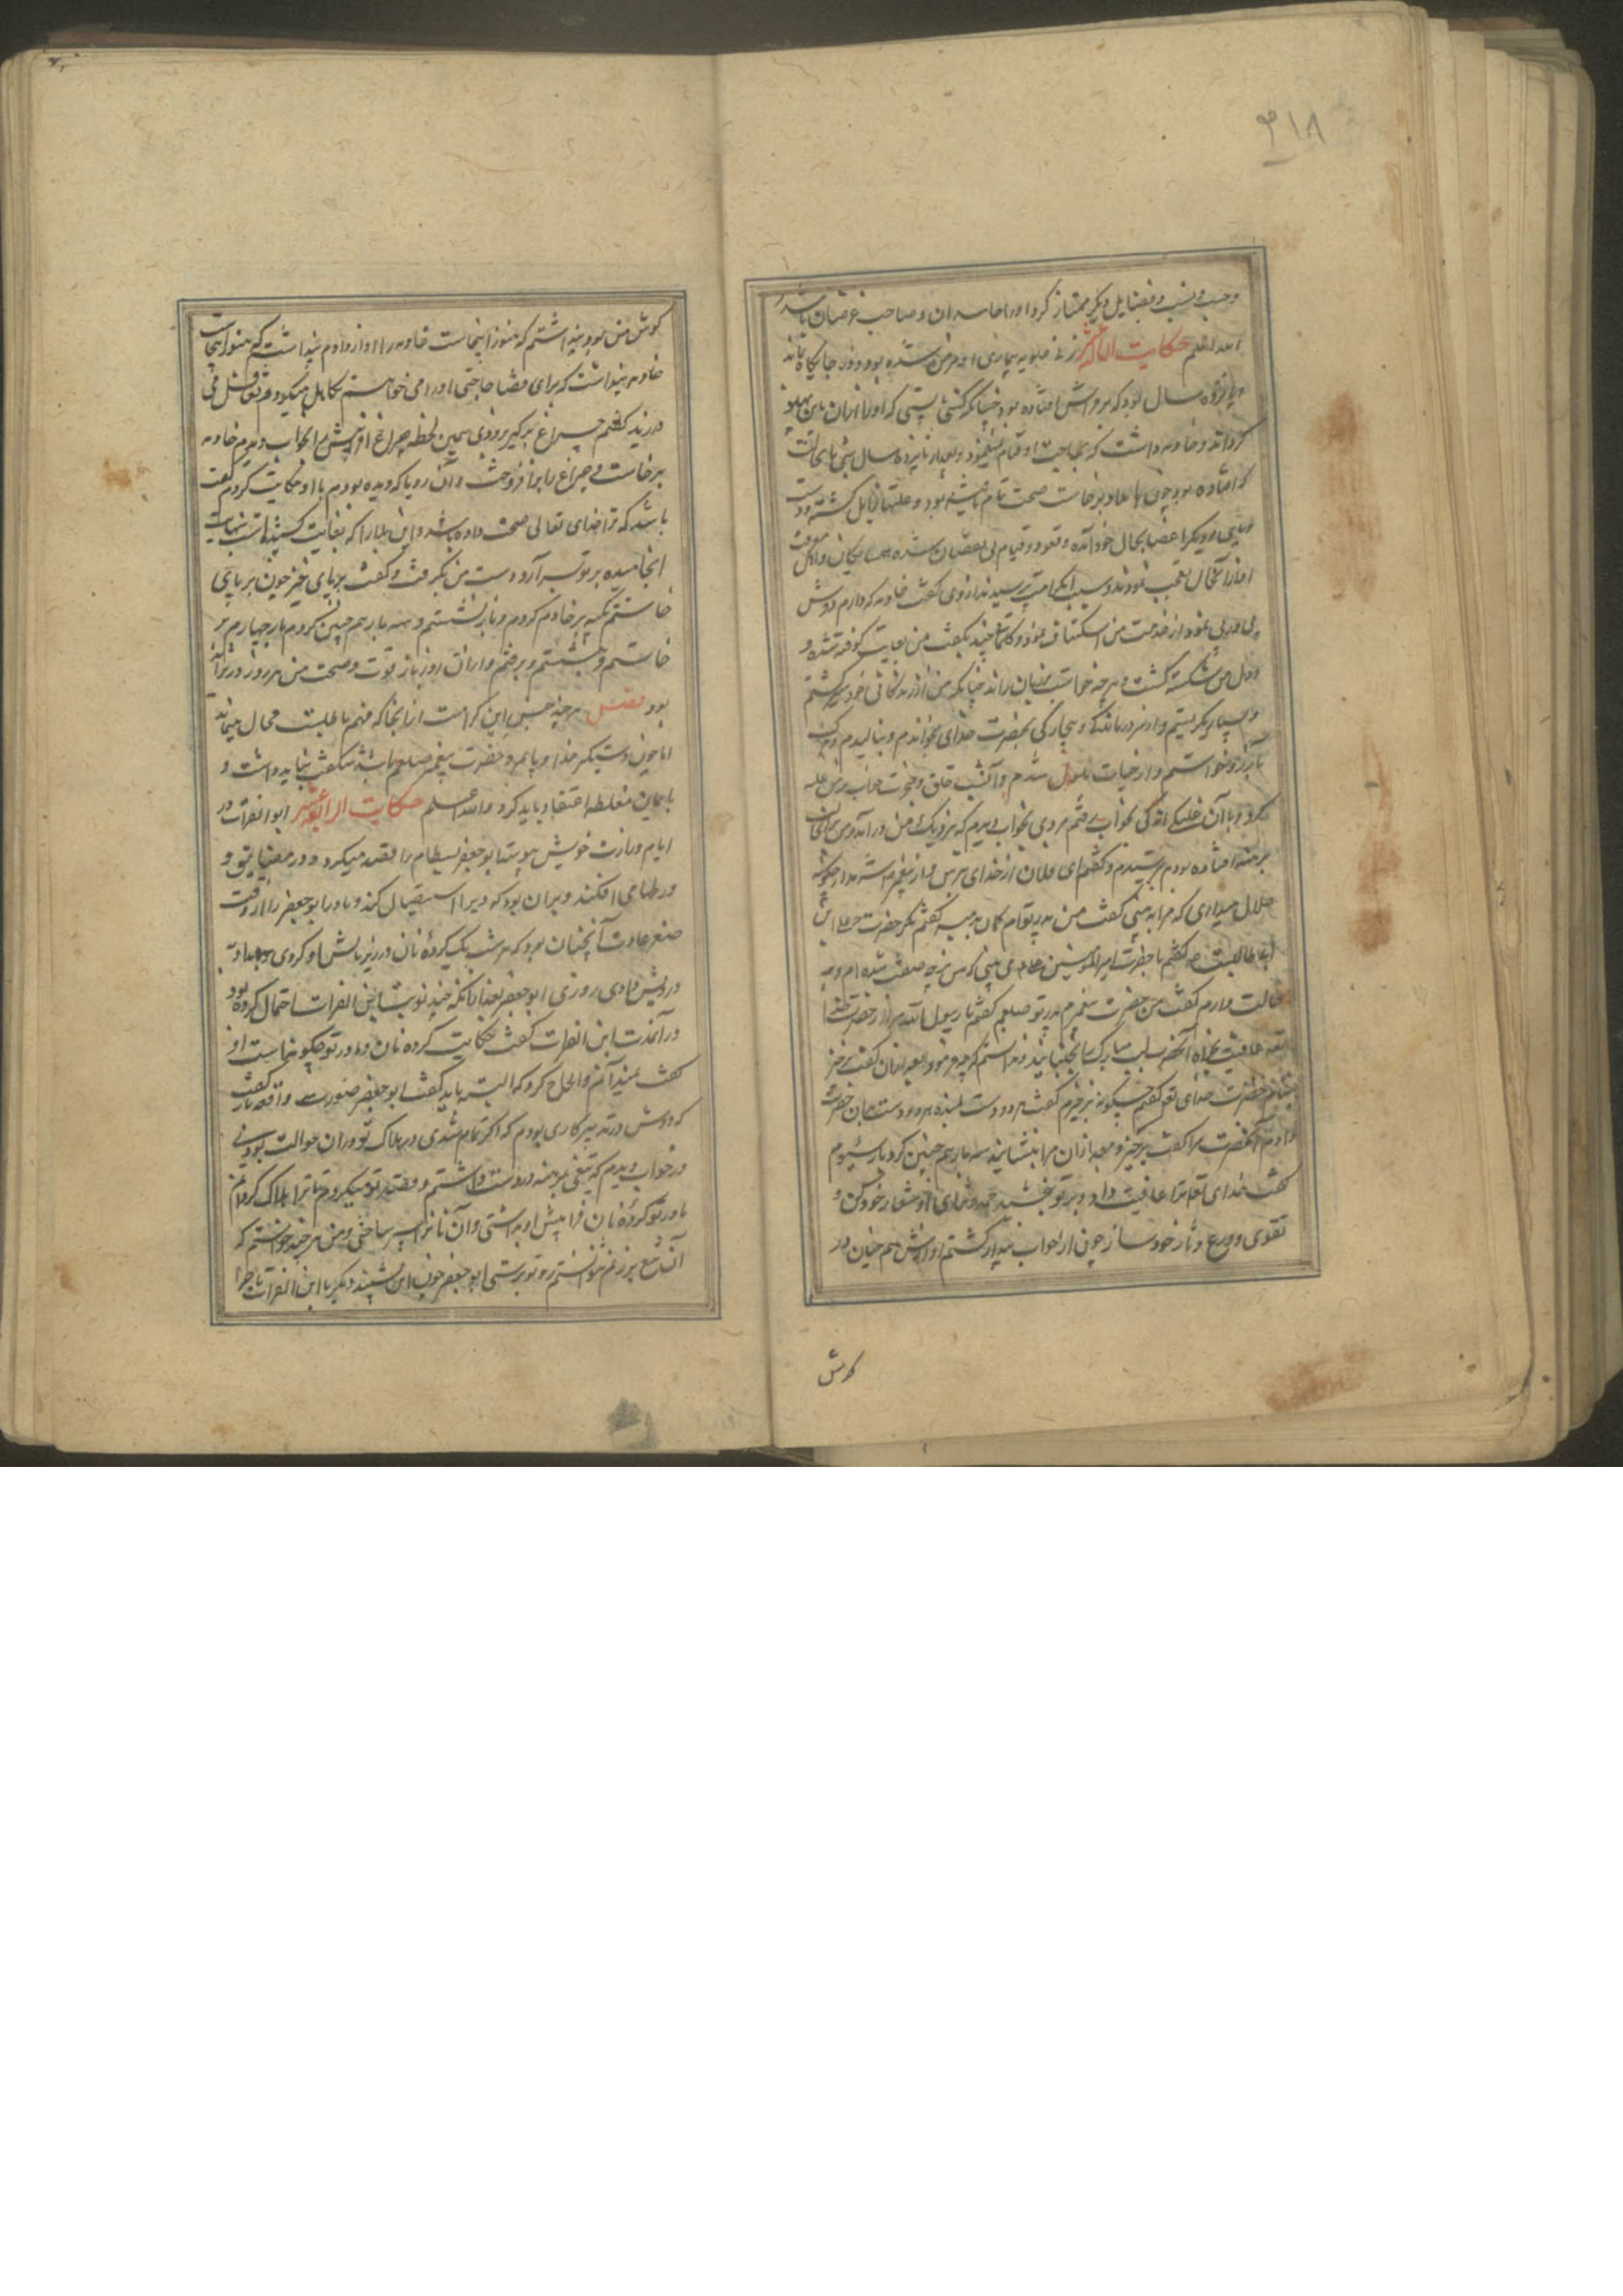 ۳۱۸
وحسب و نسب و فضایل دیگر ممتاز کرد او را حاسدان و صاحب غرضان باشند
الله اعلم حکایت زنی علویه بیماری مزمن شده بود و زود جایگاه ماند
و پانزده سال بود که بر فراش افتاده بود چنانکه گشتی بایستی که او را از آن پهلو
گردانند و خادمه داشت که بمهمات او قیام مینمود و بعد از پانزده سال شبی با بحالت
که افتاده بود چون بامداد برخاست صحت تمام یافته بود و علتها زایل گشته و دست
و پای و دیگر اعضا بحال خود آمده و قعود و قیام بی نقصان شده همسایگان و اهل معرفت
او از آنحال تعجب نمودند و سبب آن کرامت پرسیدند از وی گفت خادمه که دارم دوش
بی ادبی نمود از خدمت من استنکاف نمود و کلماتی چند بگفت من بغایت کوفته شدم و
و دل من شکسته گشت و هر چه خواست بر زبان راند چنانکه من از زندگانی خود سیر گشتم
و بسیار بگریستم و از سر درماندگی و بیچارگی بحضرت خدای بخواندم و بنالیدم و مرگ
بآرزو خواستم و از حیات ملول شدم و آنشب قلق و ضجرت خواب بر من غلبه
کرد و با آن غلبگی اندکی بخواب رفتم مردی بخواب دیدم که نزدیک من درآمد و من همچنان
برهنه افتاده بودم بترسیدم و گفتم ای فلان از خدای بترس و از پیغمبر شرم دار چگونه
حلال میداری که مرا به بینی گفت من پدر توام گمان بردم گفتم مگر حضرت علی ابن
ابی طالبست گفتم یا حضرت امیر المومنین می بینی که من بچه صفت شده ام و بچه
حالت دارم گفت من حضرت پیغمبرم پدر تو صلعم گفتم یا رسول الله مرا از حضرت خدا
تعالی عافیت بخواه آنحضرت لب مبارک بجنبانید ندانستم که چه فرمود و بعد از آن گفت برخیز
بنام حضرت خدای تعالی گفتم چگونه برخیزم گفت هر دو دست بمن ده هر دو دست بدان حضرت
دادم آنحضرت مرا گفت برخیز و بعد از آن مرا بنشانید سه بار هم چنین کرد بار سیوم
گفت خدای تعالی ترا عافیت داد و بر تو بخشید حمد و ثنای او شعار خود کن و
تقوی و ورع دثار خود ساز چون از خواب بیدار گشتم آوازش هم چنان در
گوش
گوش من بود پنداشتم که هنوز اینجاست خادمه را آواز دادم پنداشت که هنوز اینجاست
خادمه پنداشت که برای قضا حاجتی او را می خواهم تکاهل میکرد و تغافل می
ورزید گفتم چراغ برگیر بزودی همین لحظه چراغ افروز پیش من بخواب دیدم خادمه
برخاست و چراغ را برافروخت و آن رویا که دیده بودم با او حکایت کردم گفت
باشد که ترا خدای تعالی صحت داده باشد و این بلا را که بغایت کشیده است بنهایت
انجامیده بر تو بسر آرد دست من بگرفت و گفت بر پای خیز چون بر پای
خاستم تکیه بر خادم کردم و باز نشستم و سه بار هم چنین کردم بار چهارم بر
خاستم و بنشستم و برفتم و از آن روز باز قوت و صحت من هر روز در تزاید
بود فصل هر چند جنس این کرامت از آنجا که فهم ما غلبت محال مینماید
اما چون دستگیر خدا و پایمرد حضرت پیغمبر صلعم باشد شگفت نباید داشت و
بایمان مغلظه اعتقاد باید کرد والله اعلم حکایت الرابع عشر ابو الفرات در
ایام وزارت خویش پیوسته ابو جعفر بسطام را قصد میکرد و در مضایق و
ورطها می افکند و بر آن بود که ویرا استیصال کند و مادر ابو جعفر را از وقت
صغر عادت آنچنان بود که هر شب یک کرده نان در زیر بالش او کردی و بامداد به
درویش دادی روزی ابو جعفر بعد از آنکه چند نوبت از ابن الفرات احتمال کرده بود
درآمدت ابن الفرات گفت حکایت کرده نان و مادر تو چگونه است او
گفت نمیدانم و الحاح کرد که البته باید گفت ابو جعفر صورت واقعه باز گفت
که دوش در تدبیر کاری بودم که اگر تمام شدی در هلاک تو و در آن حوالت بودی
در خواب دیدم که تیغی برهنه در دست داشتم و قصد تو میکردم تا ترا هلاک گردانم
مادر تو کرده نان فرا پیش او بداشتی و آن نانرا سپر ساختی و من هر چند خواستم که
آن تیغ بر تو زنم نتوانستم ابو جعفر چون این بشنید دیگر با ابن الفرات ماجرا